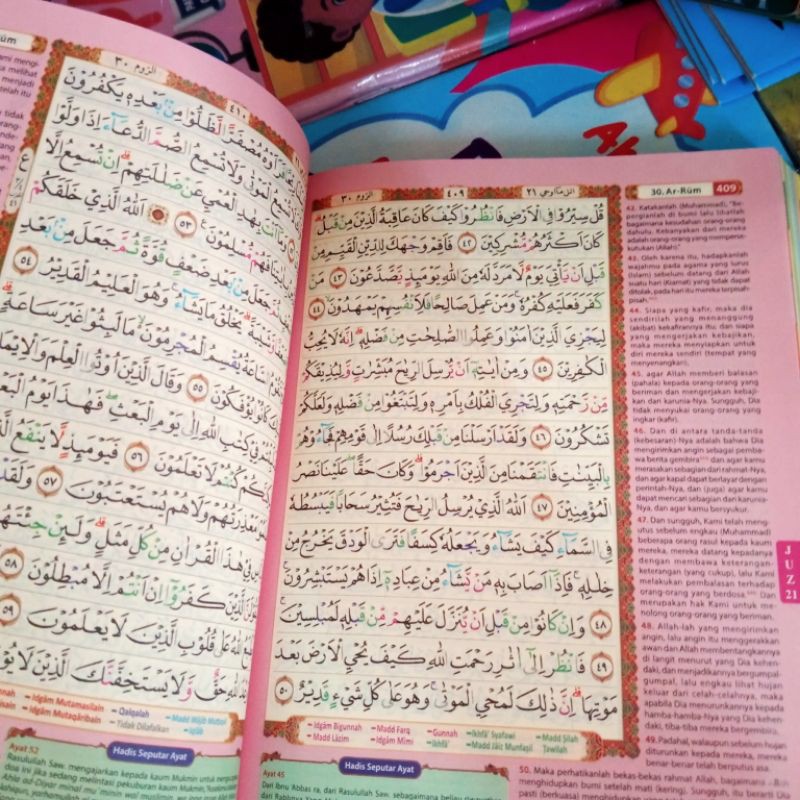 الروم ٣٠
٤٠٩
اتل ما اوحي ٢١
30. Ar-Rūm 409
قُلْ سِيْرُوْا فِى الْاَرْضِ فَانْظُرُوْا كَيْفَ كَانَ عَاقِبَةُ الَّذِيْنَ مِنْ قَبْلُۗ
كَانَ اَكْثَرُهُمْ مُّشْرِكِيْنَ ٤٢ فَاَقِمْ وَجْهَكَ لِلدِّيْنِ الْقَيِّمِ مِنْ
قَبْلِ اَنْ يَّأْتِيَ يَوْمٌ لَّا مَرَدَّ لَهٗ مِنَ اللّٰهِ يَوْمَىِٕذٍ يَّصَّدَّعُوْنَ ٤٣ مَنْ
كَفَرَ فَعَلَيْهِ كُفْرُهٗۚ وَمَنْ عَمِلَ صَالِحًا فَلِاَنْفُسِهِمْ يَمْهَدُوْنَۙ ٤٤
لِيَجْزِيَ الَّذِيْنَ اٰمَنُوْا وَعَمِلُوا الصّٰلِحٰتِ مِنْ فَضْلِهٖۗ اِنَّهٗ لَا يُحِبُّ
الْكٰفِرِيْنَ ٤٥ وَمِنْ اٰيٰتِهٖٓ اَنْ يُّرْسِلَ الرِّيٰحَ مُبَشِّرٰتٍ وَّلِيُذِيْقَكُمْ
مِّنْ رَّحْمَتِهٖ وَلِتَجْرِيَ الْفُلْكُ بِاَمْرِهٖ وَلِتَبْتَغُوْا مِنْ فَضْلِهٖ وَلَعَلَّكُمْ
تَشْكُرُوْنَ ٤٦ وَلَقَدْ اَرْسَلْنَا مِنْ قَبْلِكَ رُسُلًا اِلٰى قَوْمِهِمْ فَجَاۤءُوْهُمْ
بِالْبَيِّنٰتِ فَانْتَقَمْنَا مِنَ الَّذِيْنَ اَجْرَمُوْاۗ وَكَانَ حَقًّاۖ عَلَيْنَا نَصْرُ
الْمُؤْمِنِيْنَ ٤٧ اَللّٰهُ الَّذِيْ يُرْسِلُ الرِّيٰحَ فَتُثِيْرُ سَحَابًا فَيَبْسُطُهٗ
فِى السَّمَاۤءِ كَيْفَ يَشَاۤءُ وَيَجْعَلُهٗ كِسَفًا فَتَرَى الْوَدْقَ يَخْرُجُ مِنْ
خِلٰلِهٖۚ فَاِذَآ اَصَابَ بِهٖ مَنْ يَّشَاۤءُ مِنْ عِبَادِهٖٓ اِذَا هُمْ يَسْتَبْشِرُوْنَۚ
٤٨ وَاِنْ كَانُوْا مِنْ قَبْلِ اَنْ يُّنَزَّلَ عَلَيْهِمْ مِّنْ قَبْلِهٖ لَمُبْلِسِيْنَۚ
٤٩ فَانْظُرْ اِلٰٓى اٰثٰرِ رَحْمَتِ اللّٰهِ كَيْفَ يُحْيِ الْاَرْضَ بَعْدَ
مَوْتِهَاۗ اِنَّ ذٰلِكَ لَمُحْيِ الْمَوْتٰىۚ وَهُوَ عَلٰى كُلِّ شَيْءٍ قَدِيْرٌ ٥٠
42. Katakanlah (Muhammad), "Be-
pergianlah di bumi lalu lihatlah
bagaimana kesudahan orang-orang
dahulu. Kebanyakan dari mereka
adalah orang-orang yang memperse-
kutukan (Allah)."
43. Oleh karena itu, hadapkanlah
wajahmu pada agama yang lurus
(Islam) sebelum datang dari Allah
suatu hari (Kiamat) yang tidak dapat
ditolak, pada hari itu mereka terpisah-
pisah.
44. Siapa yang kafir, maka dia
sendirilah yang menanggung
(akibat) kekafirannya itu; dan siapa
yang mengerjakan kebajikan,
maka mereka menyiapkan untuk
diri mereka sendiri (tempat yang
menyenangkan),
45. agar Allah memberi balasan
(pahala) kepada orang-orang yang
beriman dan mengerjakan kebaji-
kan dari karunia-Nya. Sungguh, Dia
tidak menyukai orang-orang yang
ingkar (kafir).
46. Dan di antara tanda-tanda
(kebesaran)-Nya adalah bahwa Dia
mengirimkan angin sebagai pemba-
wa berita gembira dan agar kamu
merasakan sebagian dari rahmat-Nya,
dan agar kapal dapat berlayar dengan
perintah-Nya, dan (juga) agar kamu
dapat mencari sebagian dari karunia-
Nya, dan agar kamu bersyukur.
47. Dan sungguh, Kami telah meng-
utus sebelum engkau (Muhammad)
beberapa orang rasul kepada kaum
mereka, mereka datang kepadanya
dengan membawa keterangan-
keterangan (yang cukup), lalu Kami
melakukan pembalasan terhadap
orang-orang yang berdosa. Dan
merupakan hak Kami untuk me-
nolong orang-orang yang beriman.
48. Allah-lah yang mengirimkan
angin, lalu angin itu menggerakkan
awan dan Allah membentangkannya
di langit menurut yang Dia kehen-
daki, dan menjadikannya bergumpal-
gumpal, lalu engkau lihat hujan
keluar dari celah-celahnya, maka
apabila Dia menurunkannya kepada
hamba-hamba-Nya yang Dia kehen-
daki, tiba-tiba mereka bergembira.
49. Padahal, walaupun sebelum hujan
diturunkan kepada mereka, mereka
benar-benar telah berputus asa.
50. Maka perhatikanlah bekas-bekas rahmat Allah, bagaimana
menghidupkan bumi setelah mati (kering). Sungguh, itu berarti Dia
JUZ 21
Idgām Bigunnah Madd Farq Gunnah Ikhfā' Syafawi Madd Ṣilah
Madd Lāzim Idgām Mimi Ikhfā' Madd Jāiz Munfaṣil Ṭawīlah
Hadis Seputar Ayat
Ayat 45
Dari Ibnu Abbas ra. dari Rasulullah Saw. sebagaimana
الروم ٣٠
٤١٠
اَوْهُ مُصْفَرًّا لَّظَلُّوْا مِنْۢ بَعْدِهٖ يَكْفُرُوْنَ
الْمَوْتٰى وَلَا تُسْمِعُ الصُّمَّ الدُّعَاۤءَ اِذَا وَلَّوْا
وَمَآ اَنْتَ بِهٰدِ الْعُمْيِ عَنْ ضَلٰلَتِهِمْۗ اِنْ تُسْمِعُ اِلَّا
فَهُمْ مُّسْلِمُوْنَ ٥٣ اَللّٰهُ الَّذِيْ خَلَقَكُمْ
جَعَلَ مِنْۢ بَعْدِ ضَعْفٍ قُوَّةً ثُمَّ جَعَلَ مِنْۢ بَعْدِ
وَّشَيْبَةًۗ يَخْلُقُ مَا يَشَاۤءُۚ وَهُوَ الْعَلِيْمُ الْقَدِيْرُ ٥٤
السَّاعَةُ يُقْسِمُ الْمُجْرِمُوْنَ مَا لَبِثُوْا غَيْرَ سَاعَةٍۗ
كَانُوْا يُؤْفَكُوْنَ ٥٥ وَقَالَ الَّذِيْنَ اُوْتُوا الْعِلْمَ وَالْاِيْمَا
فِيْ كِتٰبِ اللّٰهِ اِلٰى يَوْمِ الْبَعْثِۖ فَهٰذَا يَوْمُ الْبَعْ
كُنْتُمْ لَا تَعْلَمُوْنَ ٥٦ فَيَوْمَىِٕذٍ لَّا يَنْفَعُ الَّ
مَعْذِرَتُهُمْ وَلَا هُمْ يُسْتَعْتَبُوْنَ ٥٧ وَلَقَدْ
فِيْ هٰذَا الْقُرْاٰنِ مِنْ كُلِّ مَثَلٍۗ وَلَىِٕنْ جِئْتَهُمْ
الَّذِيْنَ كَفَرُوْٓا اِنْ اَنْتُمْ اِلَّا مُبْطِلُوْنَ ٥٨
اللّٰهُ عَلٰى قُلُوْبِ الَّذِيْنَ لَا يَعْلَمُوْنَ ٥٩
اللّٰهِ حَقٌّ وَّلَا يَسْتَخِفَّنَّكَ الَّذِيْنَ لَا يُوْ
Idgām Mutamasilain Qalqalah Madd Wājib Muttaṣil
Idgām Mutaqāribain Tidak Dilafalkan Iqlāb
Hadis Seputar Ayat
Ayat 52
Rasulullah Saw. mengajarkan kepada kaum Mukmin untuk
doa ini jika sedang melintasi pekuburan kaum Mukmin,